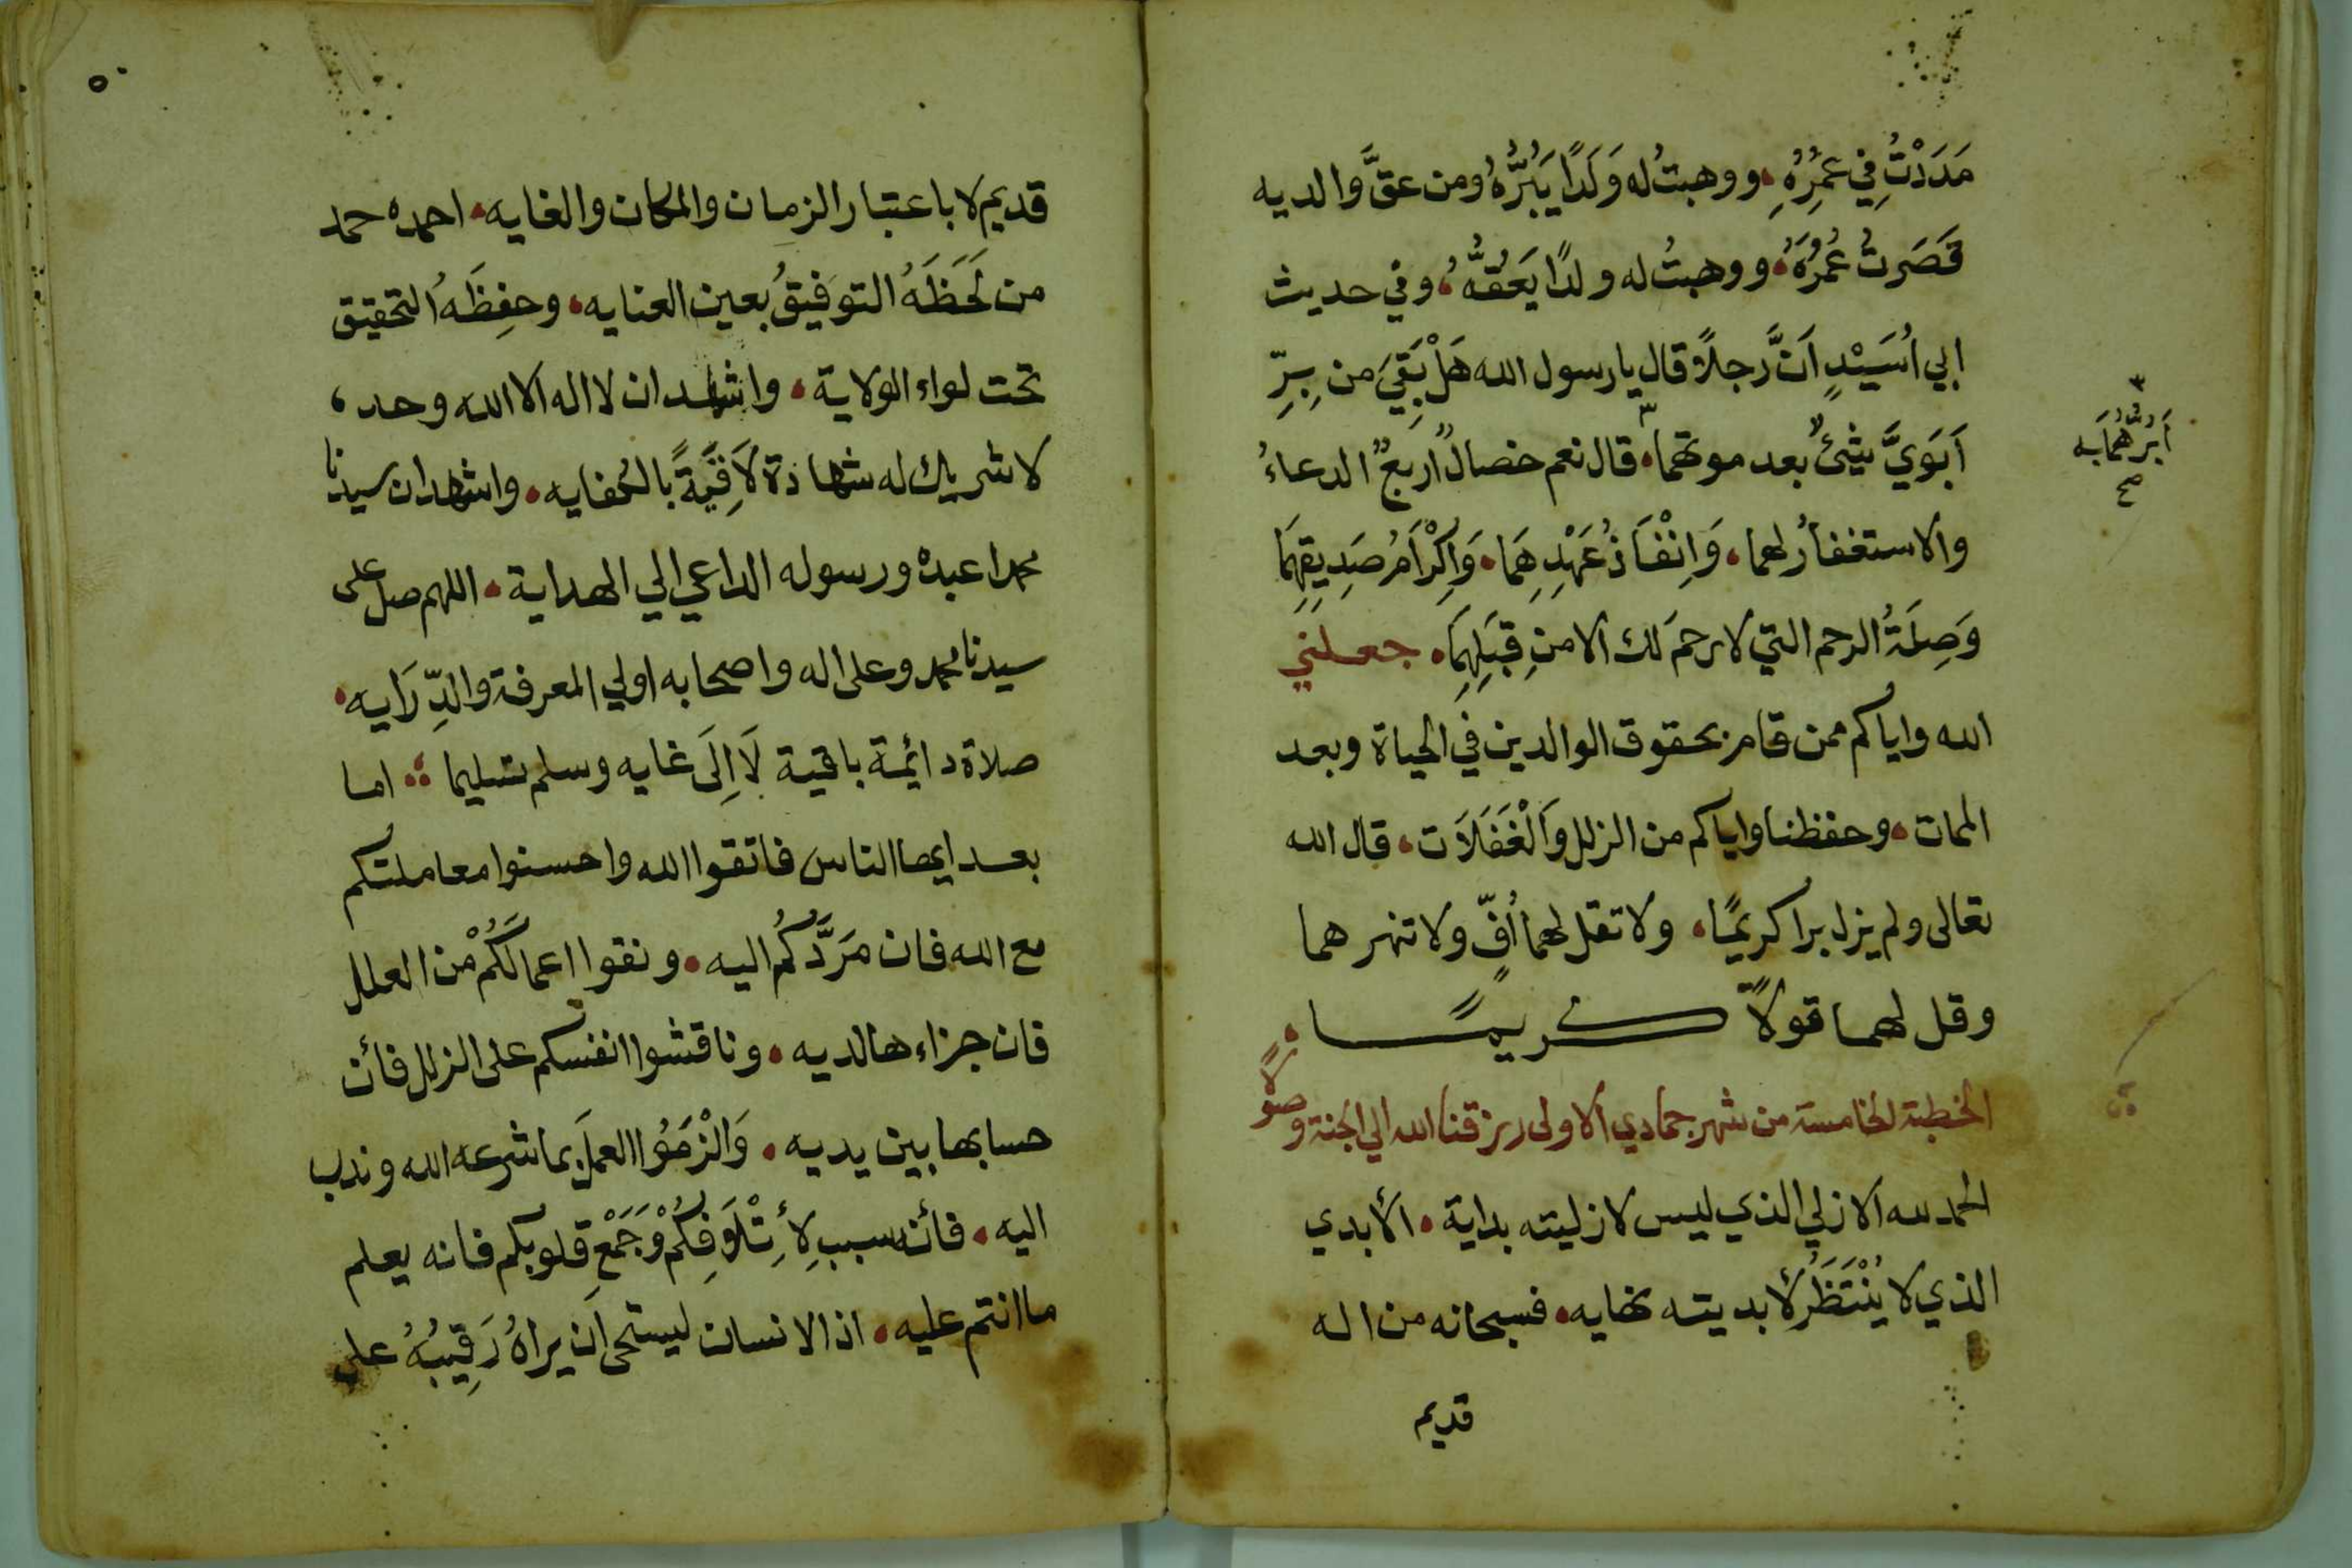 مَدَدْتُ فِي عُمُرِهِ، ووهبتُ له وَلَدًا يَبُرُّهُ ومن عقَّ والديه
قَصَرتُ عُمُرَهُ، ووهبتُ له ولدًا يَعُقُّهُ، وفي حديث
ابي اُسَيْدٍ اَنَّ رجلاً قال يا رسول الله هَلْ بَقِيَ من بِرِّ
اَبَوَيَّ شَيْئٌ بعد موتهما، قال نعم خصالٌ اربعٌ الدعاءُ
اَبَرُّهُمَا به
صح
والاستغفارُ لهما، وَاِنْفَاذُ عَهْدِهِمَا، وَاِكْرَامُ صَدِيقِهِمَا
وَصِلَةُ الرحم التي لا رحمَ لك الا من قِبَلِهِمَا، جعلني
الله واياكم ممن قام بحقوق الوالدين في الحياة وبعد
الممات، وحفظنا واياكم من الزلل وَالْغَفَلاَت، قال الله
تعالى ولم يزل برا كريمًا، ولا تقل لهما اُفٍّ ولا تنهرهما
وقل لهما قولاً كريمًا،
الخطبة الخامسة من شهر جمادي الاولى رزقنا الله الي الجنة وصولاً
الحمد لله الازلي الذي ليس لازليته بداية، الأبدي
الذي لا يُنْتَظَرُ لأبديته نهايه، فسبحانه من اله
قديم
٥٠
قديم لا باعتبار الزمان والمكان والغايه، احمده حمد
من لَحَظَهُ التوفيقُ بعين العنايه، وحفِظَهُ التحقيق
تحت لواء الولاية، واشهد ان لا اله الا الله وحده
لا شريك له شهادة لاَفِيَةً بالحُفايه، واشهد ان سيدنا
محمدا عبده ورسوله الداعي الي الهداية، اللهم صل على
سيدنا محمد وعلى اله واصحابه اولي المعرفة والدِّرَايه،
صلاة دائمة باقية لاَ اِلَى غايه وسلم تسليما اما
بعد ايها الناس فاتقوا الله واحسنوا معاملتكم
مع الله فان مَرَدَّكُم اليه، ونقوا اعمالَكُمْ من العلل
فان جزاءها لديه، وناقشوا انفسكم على الزلل فأن
حسابها بين يديه، وَالْزَمُوا العمل بما شرعه الله وندب
اليه، فأنه سبب لِأْتِلَافِكُمْ وَجَمْعِ قلوبكم فانه يعلم
ما انتم عليه، اذ الانسان ليستحى اَن يراهُ رَقِيبُهُ على